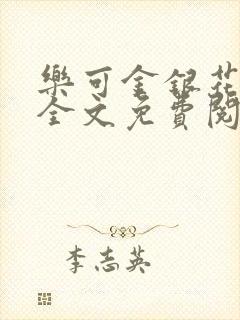 樂可金銀花
全文免費閱
李志英